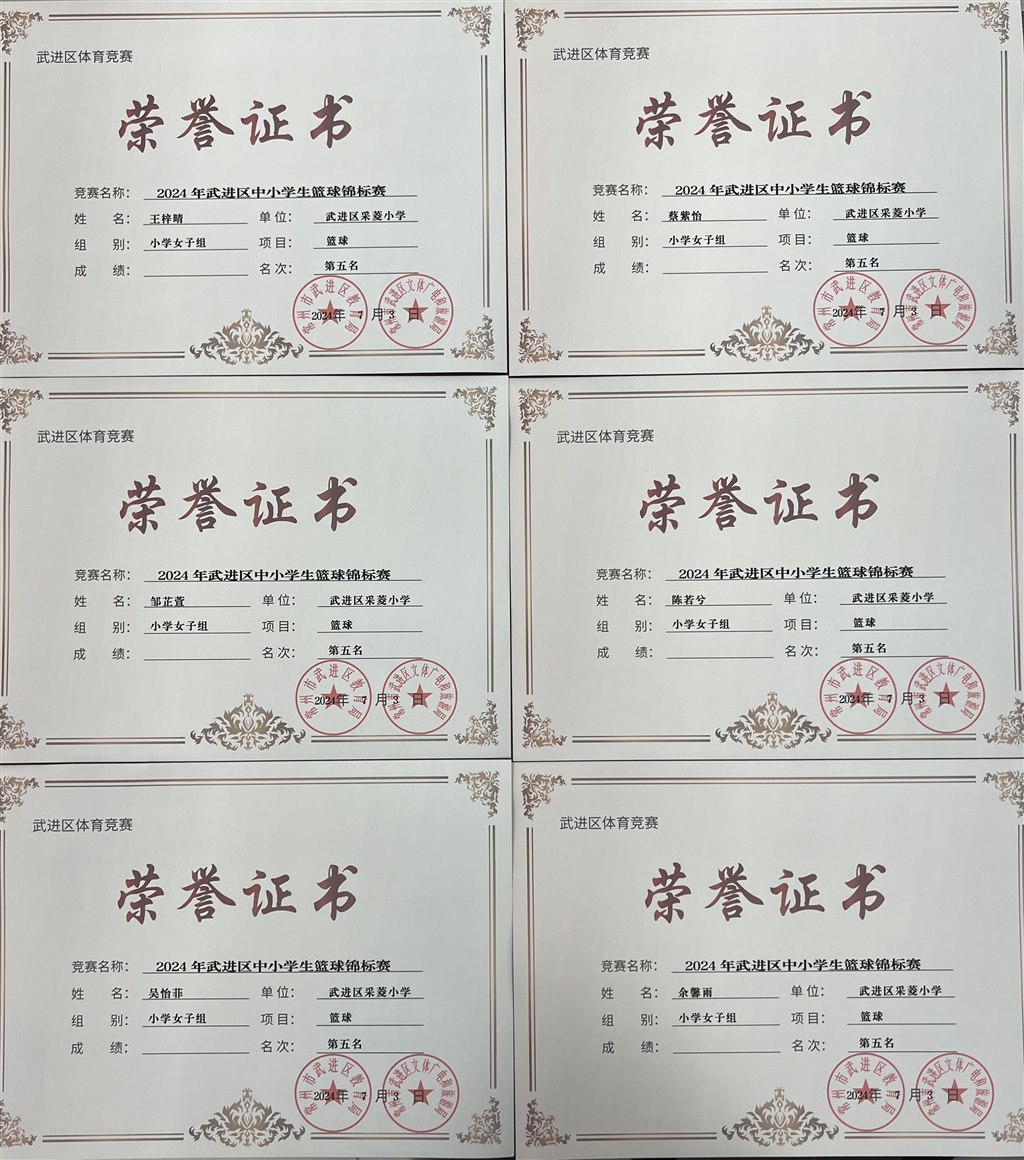 武进区体育竞赛
荣誉证书
竞赛名称： 2024 年武进区中小学生篮球锦标赛
姓 名： 王梓晴 单 位： 武进区采菱小学
组 别： 小学女子组 项 目： 篮球
成 绩： 名 次： 第五名
常州市武进区教育局
常州市武进区文体广电和旅游局
2024年 7 月 3 日
武进区体育竞赛
荣誉证书
竞赛名称： 2024 年武进区中小学生篮球锦标赛
姓 名： 蔡紫怡 单 位： 武进区采菱小学
组 别： 小学女子组 项 目： 篮球
成 绩： 名 次： 第五名
常州市武进区教育局
常州市武进区文体广电和旅游局
2024年 7 月 3 日
武进区体育竞赛
荣誉证书
竞赛名称： 2024 年武进区中小学生篮球锦标赛
姓 名： 邹芷萱 单 位： 武进区采菱小学
组 别： 小学女子组 项 目： 篮球
成 绩： 名 次： 第五名
常州市武进区教育局
常州市武进区文体广电和旅游局
2024年 7 月 3 日
武进区体育竞赛
荣誉证书
竞赛名称： 2024 年武进区中小学生篮球锦标赛
姓 名： 陈若兮 单 位： 武进区采菱小学
组 别： 小学女子组 项 目： 篮球
成 绩： 名 次： 第五名
常州市武进区教育局
常州市武进区文体广电和旅游局
2024年 7 月 3 日
武进区体育竞赛
荣誉证书
竞赛名称： 2024 年武进区中小学生篮球锦标赛
姓 名： 吴怡菲 单 位： 武进区采菱小学
组 别： 小学女子组 项 目： 篮球
成 绩： 名 次： 第五名
常州市武进区教育局
常州市武进区文体广电和旅游局
2024年 7 月 3 日
武进区体育竞赛
荣誉证书
竞赛名称： 2024 年武进区中小学生篮球锦标赛
姓 名： 余馨雨 单 位： 武进区采菱小学
组 别： 小学女子组 项 目： 篮球
成 绩： 名 次： 第五名
常州市武进区教育局
常州市武进区文体广电和旅游局
2024年 7 月 3 日